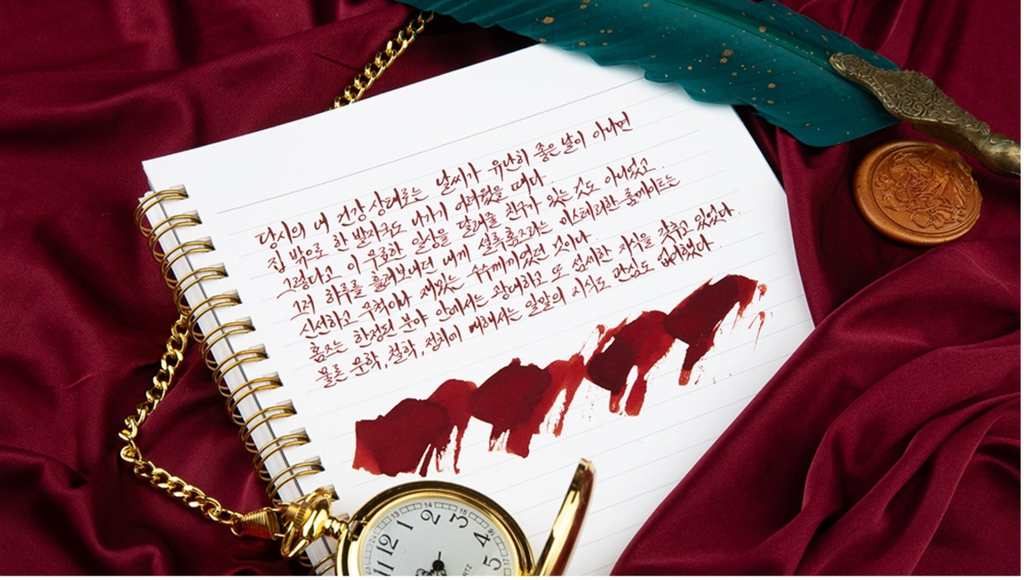 당시의 내 건강 상태로는 날씨가 유난히 좋은 날이 아니면
집 밖으로 한 발자국도 나가기 어려웠을 때다.
그렇다고 이 무료한 일상을 달래줄 친구가 있는 것도 아니었고.
그저 하루를 흘려보내던 내게 셜록홈즈라는 미스테리한 룸메이트는
신선하고 유쾌하나 재밌는 수수께끼였던 것이다.
홈즈는 한정된 분야 안에서는 광대하고 또 섬세한 지식을 갖추고 있었다.
물론 문학, 철학, 정치에 대해서는 일말의 지식도 관심도 없어했다.
12
1
2
3
4
5
11
13
14
15
QUARTZ